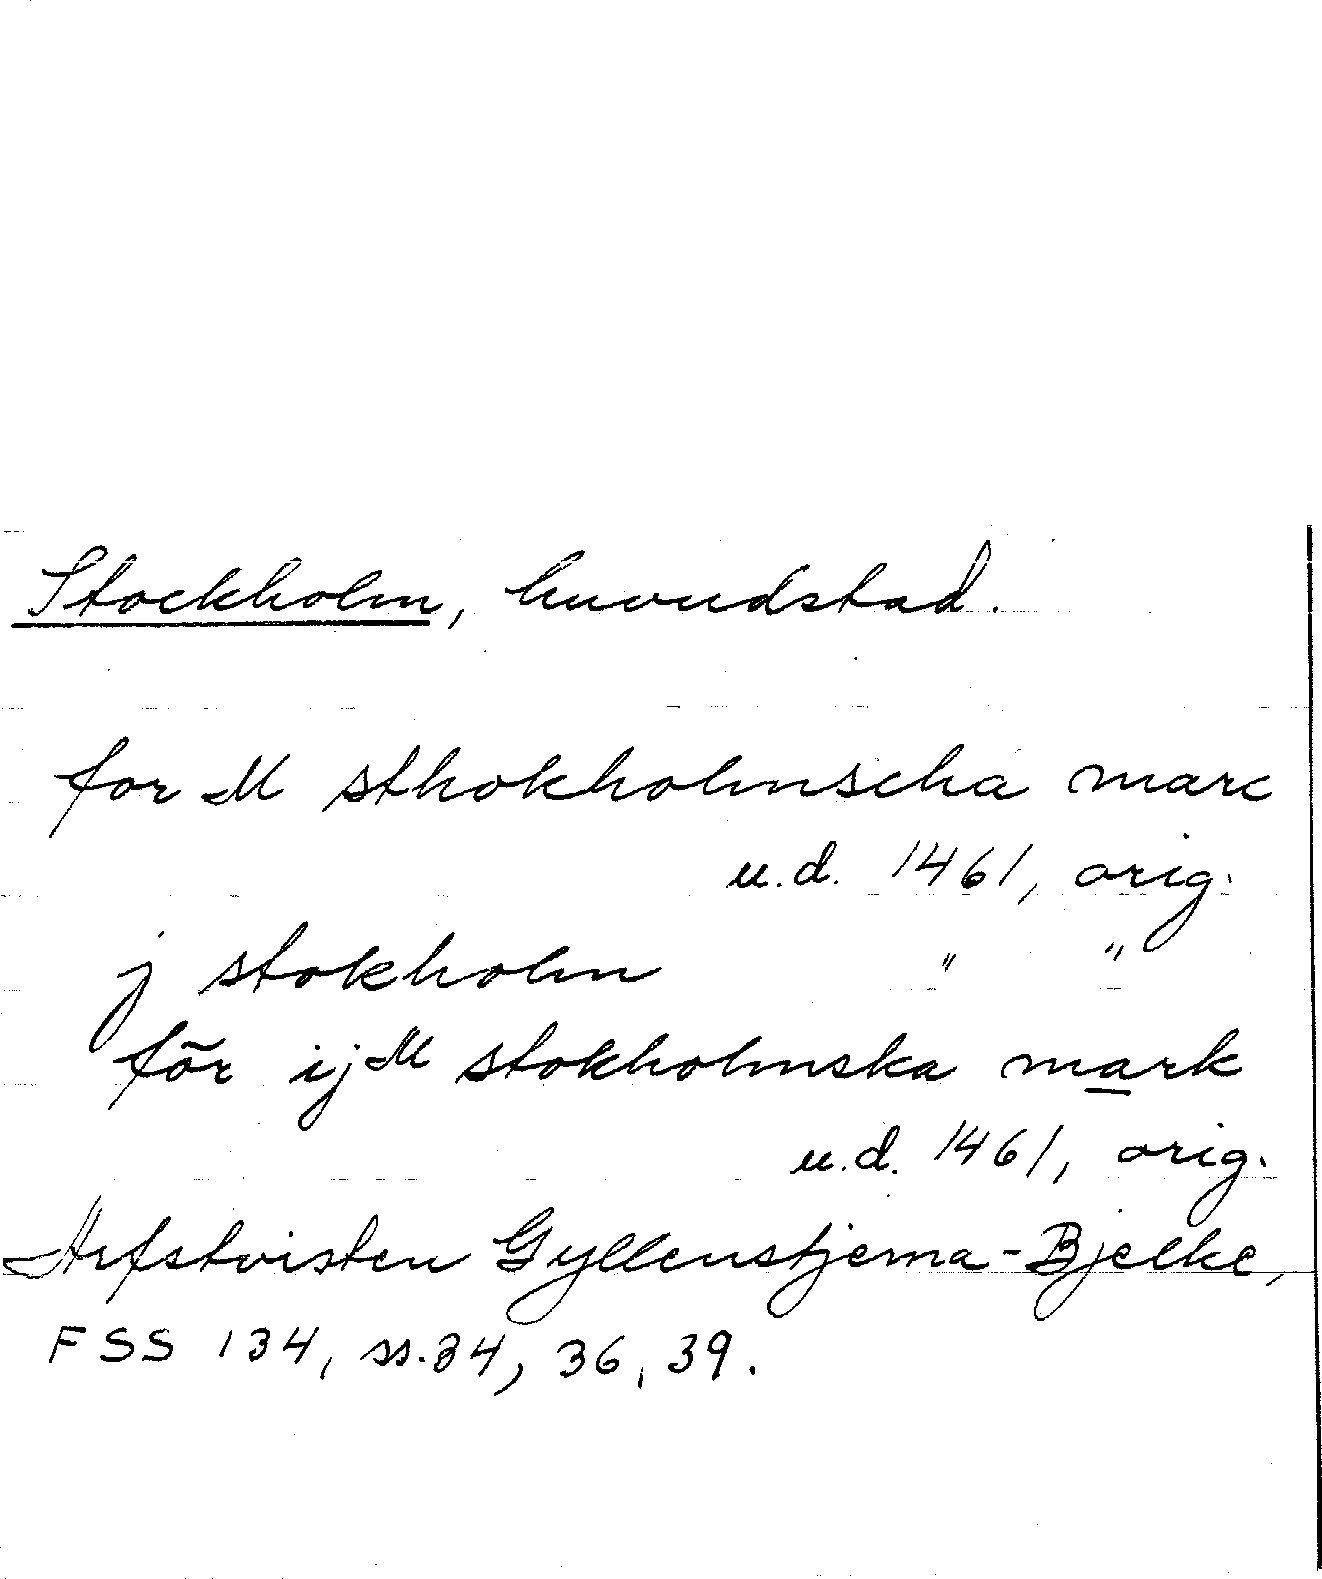 Stockholm, huvudstad.
for M sthokholmscha marc
u.d. 1461, orig.
j stokholm " "
för ij M stokholmska mark
u.d. 1461, orig.
Arfstvisten Gyllenstjerna-Bjelke,
FSS 134, ss.34, 36, 39.